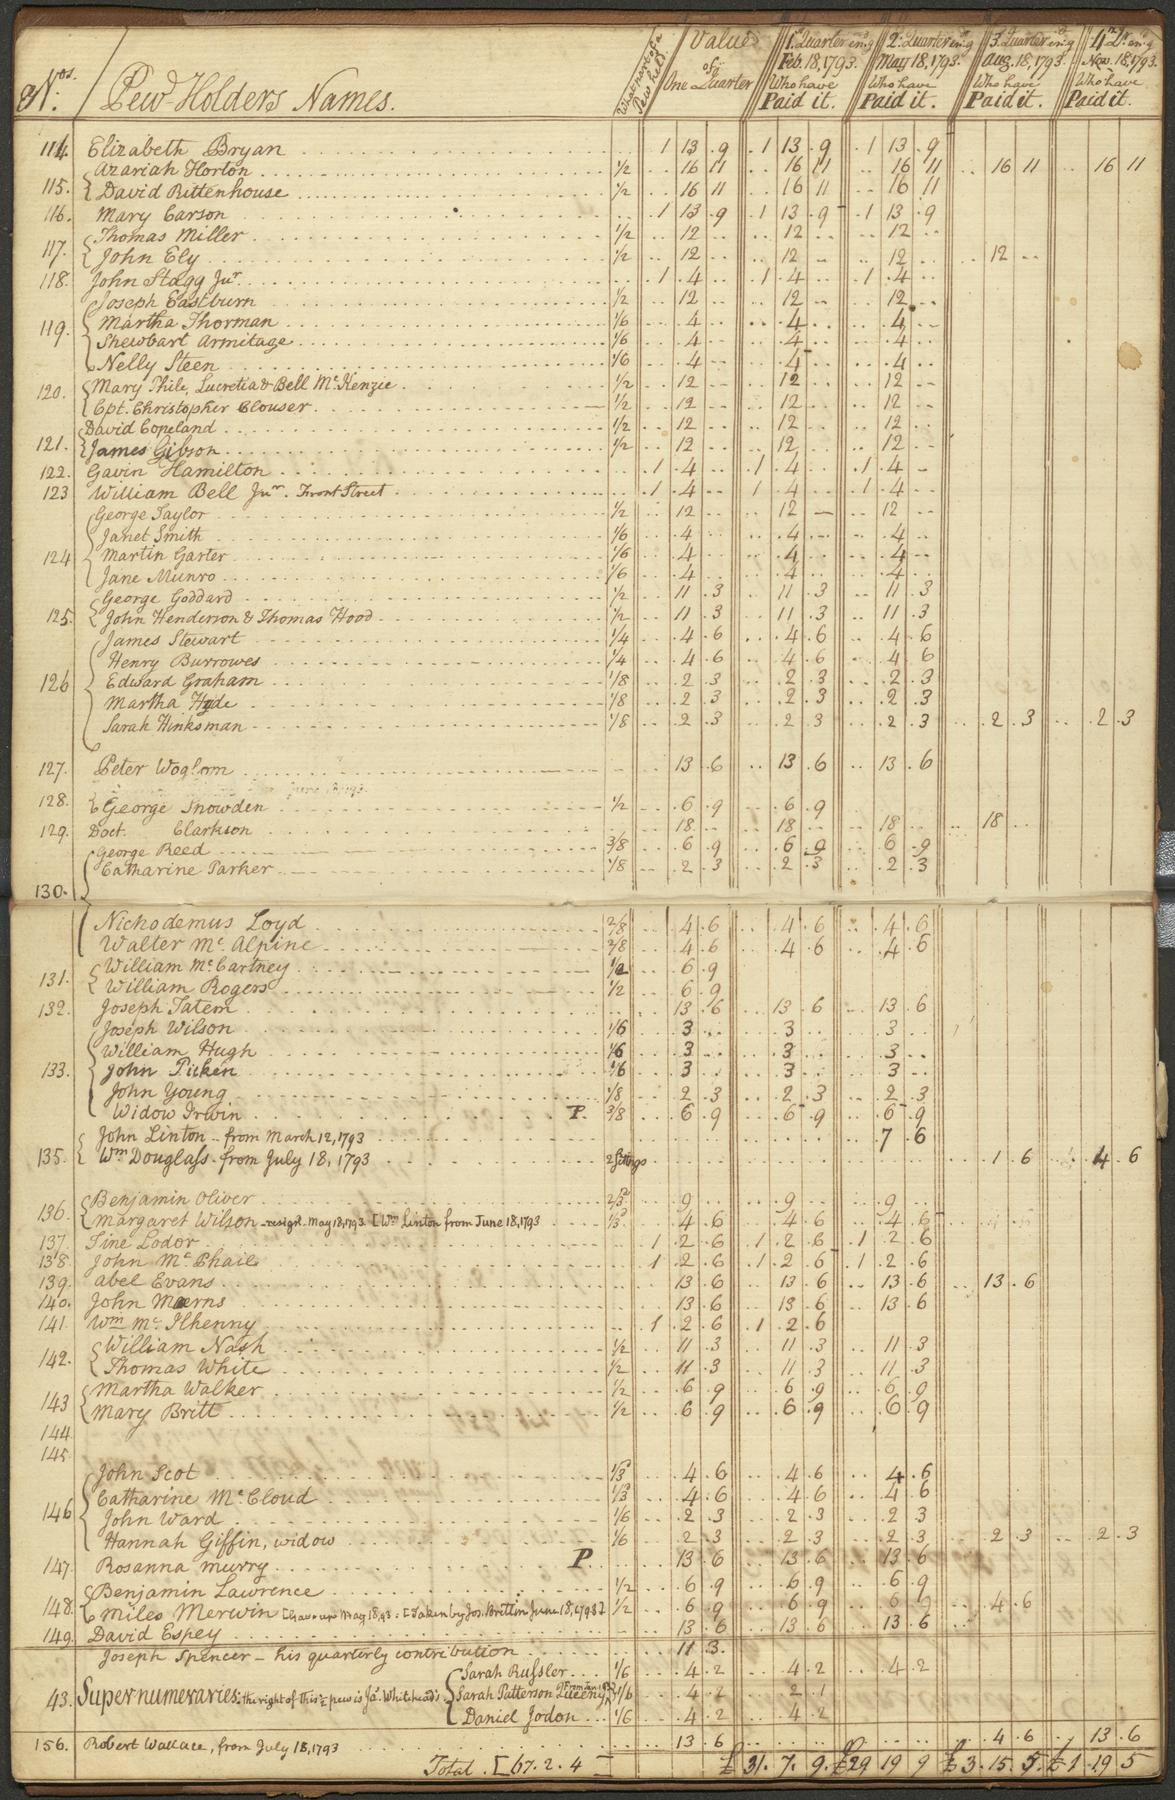 Nos. Pew Holders Names. What part of a Pew held Value of One Quarter 1. Quarter en.g Feb. 18, 1793. Who have Paid it. 2. Quarter en.g May 18, 1793. Who have Paid it. 3. Quarter en.g Aug. 18, 1793. Who have Paid it. 4th Qr. en.g Nov. 18, 1793. Who have Paid it.
114 Elizabeth Bryan 1 13 9 1 13 9 1 13 9
Azariah Horton 1/2 16 11 16 11 16 11 16 11 16 11
115. David Rittenhouse 1/2 16 11 16 11 16 11
116. Mary Carson 1 13 9 1 13 9 1 13 9
Thomas Miller 1/2 12 12 12
117. John Ely 1/2 12 12 12 12
118. John Stagg Junr. 1 4 1 4 1 4
Joseph Eastburn 1/2 12 12 12
119. Martha Thorman 1/6 4 4 4
Shewbart Armitage 1/6 4 4 4
Nelly Steen 1/6 4 4 4
120. Mary Thile, Lucretia & Bell McKenzie 1/2 12 12 12
Cpt. Christopher Clouser 1/2 12 12 12
David Copeland 1/2 12 12 12
121. James Gibson 1/2 12 12 12
122. Gavin Hamilton 1 4 1 4 1 4
123 William Bell Junr. Front Street 1 4 1 4 1 4
George Taylor 1/2 12 12 12
Janet Smith 1/6 4 4 4
124 Martin Garter 1/6 4 4 4
Jane Munro 1/6 4 4 4
George Goddard 1/2 11 3 11 3 11 3
125. John Henderson & Thomas Hood 1/2 11 3 11 3 11 3
James Stewart 1/4 4 6 4 6 4 6
Henry Burrowes 1/4 4 6 4 6 4 6
126 Edward Graham 1/8 2 3 2 3 2 3
Martha Hyde 1/8 2 3 2 3 2 3
Sarah Hinksman 1/8 2 3 2 3 2 3 2 3 2 3
127. Peter Woglom 13 6 13 6 13 6
June 18, 1793
128. George Snowden 1/2 6 9 6 9
129. Doct. Clarkson 18 18 18 18
George Reed 3/8 6 9 6 9 6 9
Catharine Parker 1/8 2 3 2 3 2 3
130.
Nichodemus Loyd 2/8 4 6 4 6 4 6
Walter Mc Alpine 2/8 4 6 4 6 4 6
William McCartney 1/2 6 9
131. William Rogers 1/2 6 9
132. Joseph Tatem 13 6 13 6 13 6
Joseph Wilson 1/6 3 3 3
William Hugh 1/6 3 3 3
133. John Picken 1/6 3 3 3
John Young 1/8 2 3 2 3 2 3
Widow Irwin P. 3/8 6 9 6 9 6 9
John Linton - from March 12, 1793 7 6
135. Wm Douglass. from July 18, 1793 2 Sittings 1 6 4 6
Benjamin Oliver 2/3 9 9 9
136. Margaret Wilson - resign. May 18, 1793 [Wm Linton from June 18, 1793 1/3 4 6 4 6 4 6
137 Fine Lodor 1 2 6 1 2 6 1 2 6
138. John McPhail 1 2 6 1 2 6 1 2 6
139. Abel Evans 13 6 13 6 13 6 13 6
140. John Mearns 13 6 13 6 13 6
141. Wm Mc Ilhenny 1 2 6 1 2 6
William Nash 1/2 11 3 11 3 11 3
142. Thomas White 1/2 11 3 11 3 11 3
Martha Walker 1/2 6 9 6 9 6 9
143 Mary Britt 1/2 6 9 6 9 6 9
144
145
John Scot 1/3 4 6 4 6 4 6
Catharine McCloud 1/3 4 6 4 6 4 6
146 John Ward 1/6 2 3 2 3 2 3
Hannah Giffin, widow 1/6 2 3 2 3 2 3 2 3 2 3
147. Rosanna Murry P 13 6 13 6 13 6
Benjamin Lawrence 1/2 6 9 6 9 6 9
148. Miles Merwin [Gave up May 18, 93: [Taken by Jos. Brittin June 18, 1793] 1/2 6 9 6 9 6 9 4 6
149. David Espey 13 6 13 6 13 6
Joseph Spencer - his quarterly contribution 11 3
Sarah Russler 1/6 4 2 4 2 4 2
43. Supernumeraries: the right of this 1/2 pew is Ja. Whitehead's. Sarah Patterson 1/6 4 2 2 1
Daniel Jodon 1/6 4 2 4 2
156. Robert Wallace, from July 18, 1793 13 6 4 6 13 6
Total. [67. 2. 4 £ 31. 7. 9. £29 19 9 £3. 15. 5. £1. 19 5